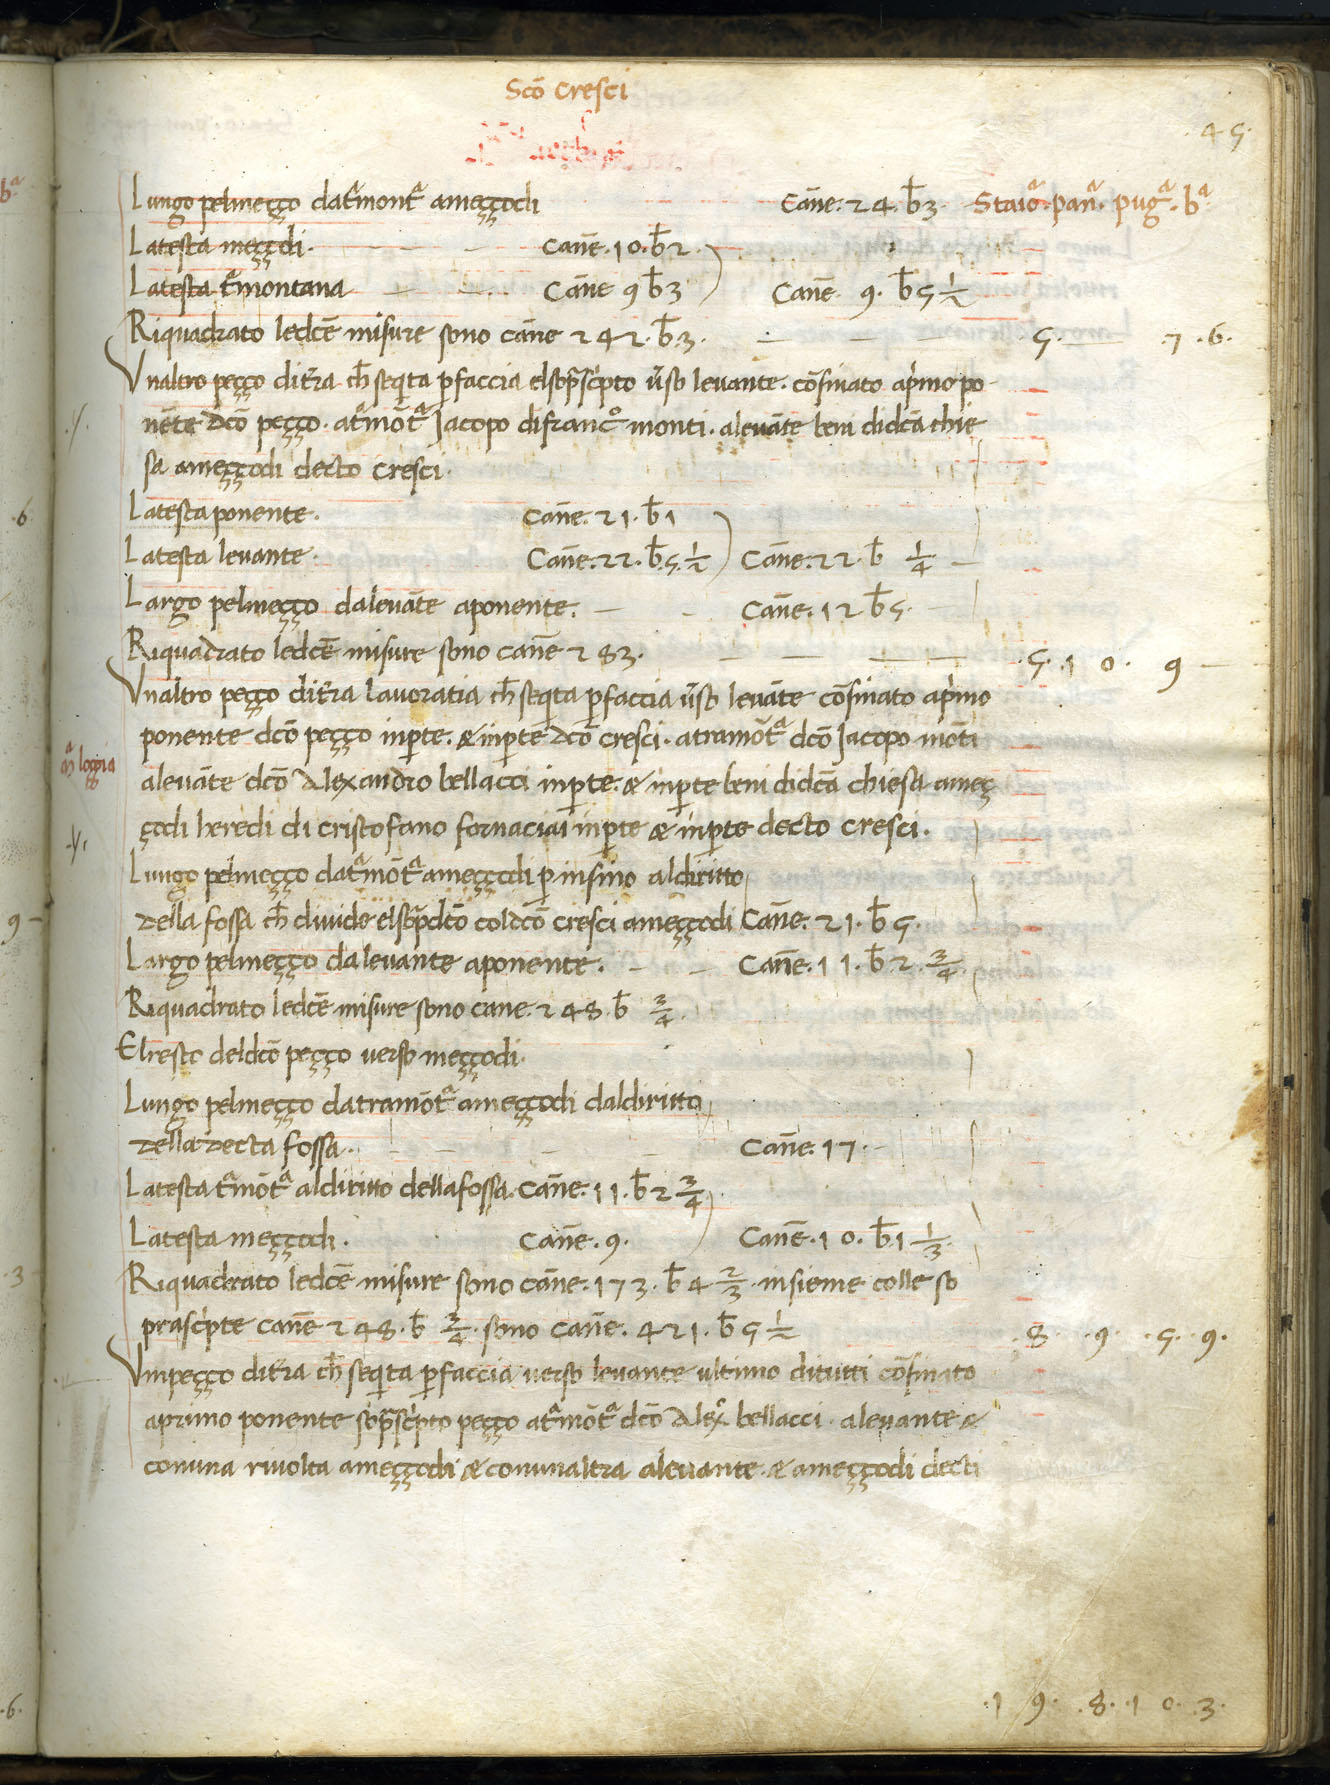 Scō Cresci
45
Lungo pelmeççο datr̄montª ameççodi Cañe. 24. b̄3. Staiorª. pañª. pugª. bª.
Latesta meççodi. Cañe. 10. b̄2.
Latesta tr̄montana Cañe 9 b̄3 Cañe 9. b̄5 1/2
Riquadrato ledcē misure sono cañe 242. b̄.3. 5. — 7. 6.
Vnaltro peçço ditr̄ra ch̄ seq̄ta p̄faccia elsop̄scͥpto ūso levante. cōfinato apͥmo po
nēte dcō peçço. atr̄mōtª Jacopo difrancº monti. alevāte beni didcā chie
sa ameççodi decto Cresci.
Latesta ponente. Cañe. 21. b̄1
Latesta levante. Cañe. 22. b̄.5. 1/2 Cañe. 22. b̄ 1/4
Largo pelmeçço dalevāte aponente. Cañe. 12 b̄5.
Riquadrato ledcē misure sono cañe 283. .5. 10. 9 —
Vnaltro peçço ditr̄ra lavoratia ch̄ seq̄ta p̄faccia ūso levāte cōfinato apͥmo
ponente dcō peçço inp̄te. & inp̄te dcō cresci. atramōtª dcō Jacopo mōti
aª loggia
alevāte dcō Alexandro bellacci inp̄te. & inp̄te beni didcā chiesa ameç
çodi heredi di cristofano fornaciai inp̄te & inp̄te decto Cresci.
Lungo pelmeçço datr̄mōtª ameççodi p̄ insino aldiritto
della fossa ch̄ divide elsop̄dcō coldcō cresci ameççodi Cañe. 21. b̄ 5.
Largo pelmeçço dalevante aponente. Cañe. 11. b̄. 2. 3/4.
Riquadrato ledcē misure sono cane. 248. b̄ 3/4.
Elresto deldcō peçço verso meççodi.
Lungo pelmeçço datramōtª ameççodi daldiritto
della decta fossa. Cañe. 17.
Latesta tr̄mōtª aldiritto dellafossa. Cañe. 11. b̄ 2 3/4
Latesta meççodi. Cañe. 9. Cañe. 10. b̄.1 1/3.
Riquadrato ledcē misure sono cāne. 173. b̄ 4 2/3. insieme colle so
prascͥpte cañe 248. b̄ 3/4. sono cañe. 421. b̄ 5 1/2 .8. .9. .5. 9.
Vmpeçço ditr̄ra ch̄ seq̄ta p̄faccia verso levante ultimo ditutti cōfinato
aprimo ponente sop̄scͥpto peçço atr̄mōtª dcō Alexº bellacci. alevante &
conuna rivolta ameççodi & conunaltra alevante. & ameççodi decti
.19. .8. .10. .3.